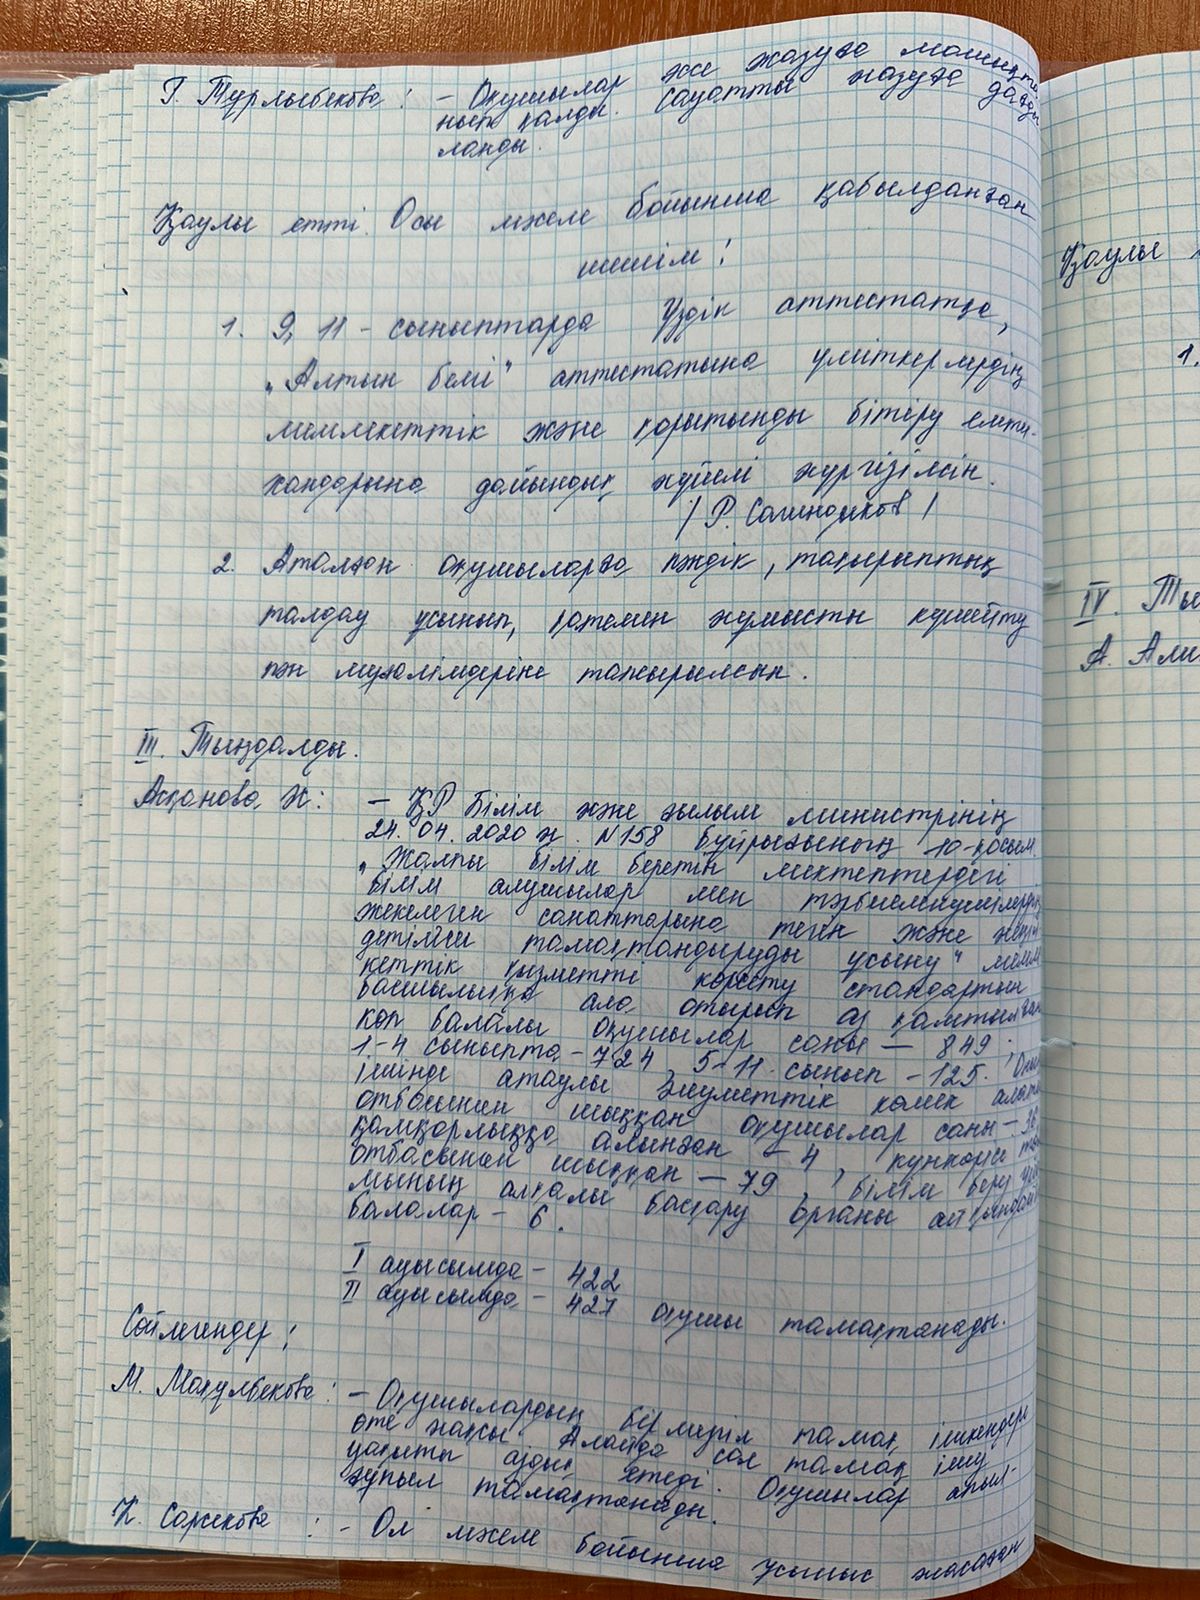 Г. Тұрлыбекова: - Оқушылар эссе жазуға машықта
нып қалды. Сауатты жазуға дағды
ланды.
Қаулы етті. Осы мәселе бойынша қабылданған
шешім:
1. 9, 11 - сыныптарда Үздік аттестатқа,
„Алтын белгі" аттестатына үміткерлердің
мемлекеттік және қорытынды бітіру емти-
хандарына дайындық жүйелі жүргізілсін.
/ Р. Салиндиков /
2. Аталған оқушыларға пәндік, тақырыптық
талдау ұсынып, қатемен жұмысты күшейту
пән мұғалімдеріне тапсырылсын.
III. Тыңдалды.
Асқанова Ж: - ҚР Білім және ғылым министрінің
24. 04. 2020 ж. N158 бұйрығының 10-қосым.
„Жалпы білім беретін мектептердегі
білім алушылар мен тәрбиеленушілердің
жекелеген санаттарына тегін және жеңіл
детілген тамақтандыруды ұсыну" мемле
кеттік қызметті көрсету стандартын
басшылыққа ала отырып аз қамтылған
көп балалы оқушылар саны - 849;
1-4 сыныпта - 724, 5-11 сынып - 125. Оның
ішінде атаулы әлеуметтік көмек алатын
отбасынан шыққан оқушылар саны -
қамқорлыққа алынған - 4, күнкөрісі төм
отбасынан шыққан - 79, білім беру ұйы
мының алқалы басқару органы айқындаған
балалар - 6.
I ауысымда - 422
II ауысымда - 427 оқушы тамақтанады.
Сөйлегендер:
М. Мақұлбекова: - Оқушылардың бір мезгіл тамақ ішкендері
өте жақсы. Алайда сол тамақ ішу
уақыты аздық етеді. Оқушылар апыл-
құпыл тамақтанады.
К. Сарсекова: - Ол мәселе бойынша ұсыныс жасаған
Қаулы
1.
IV. Ты
А. Али